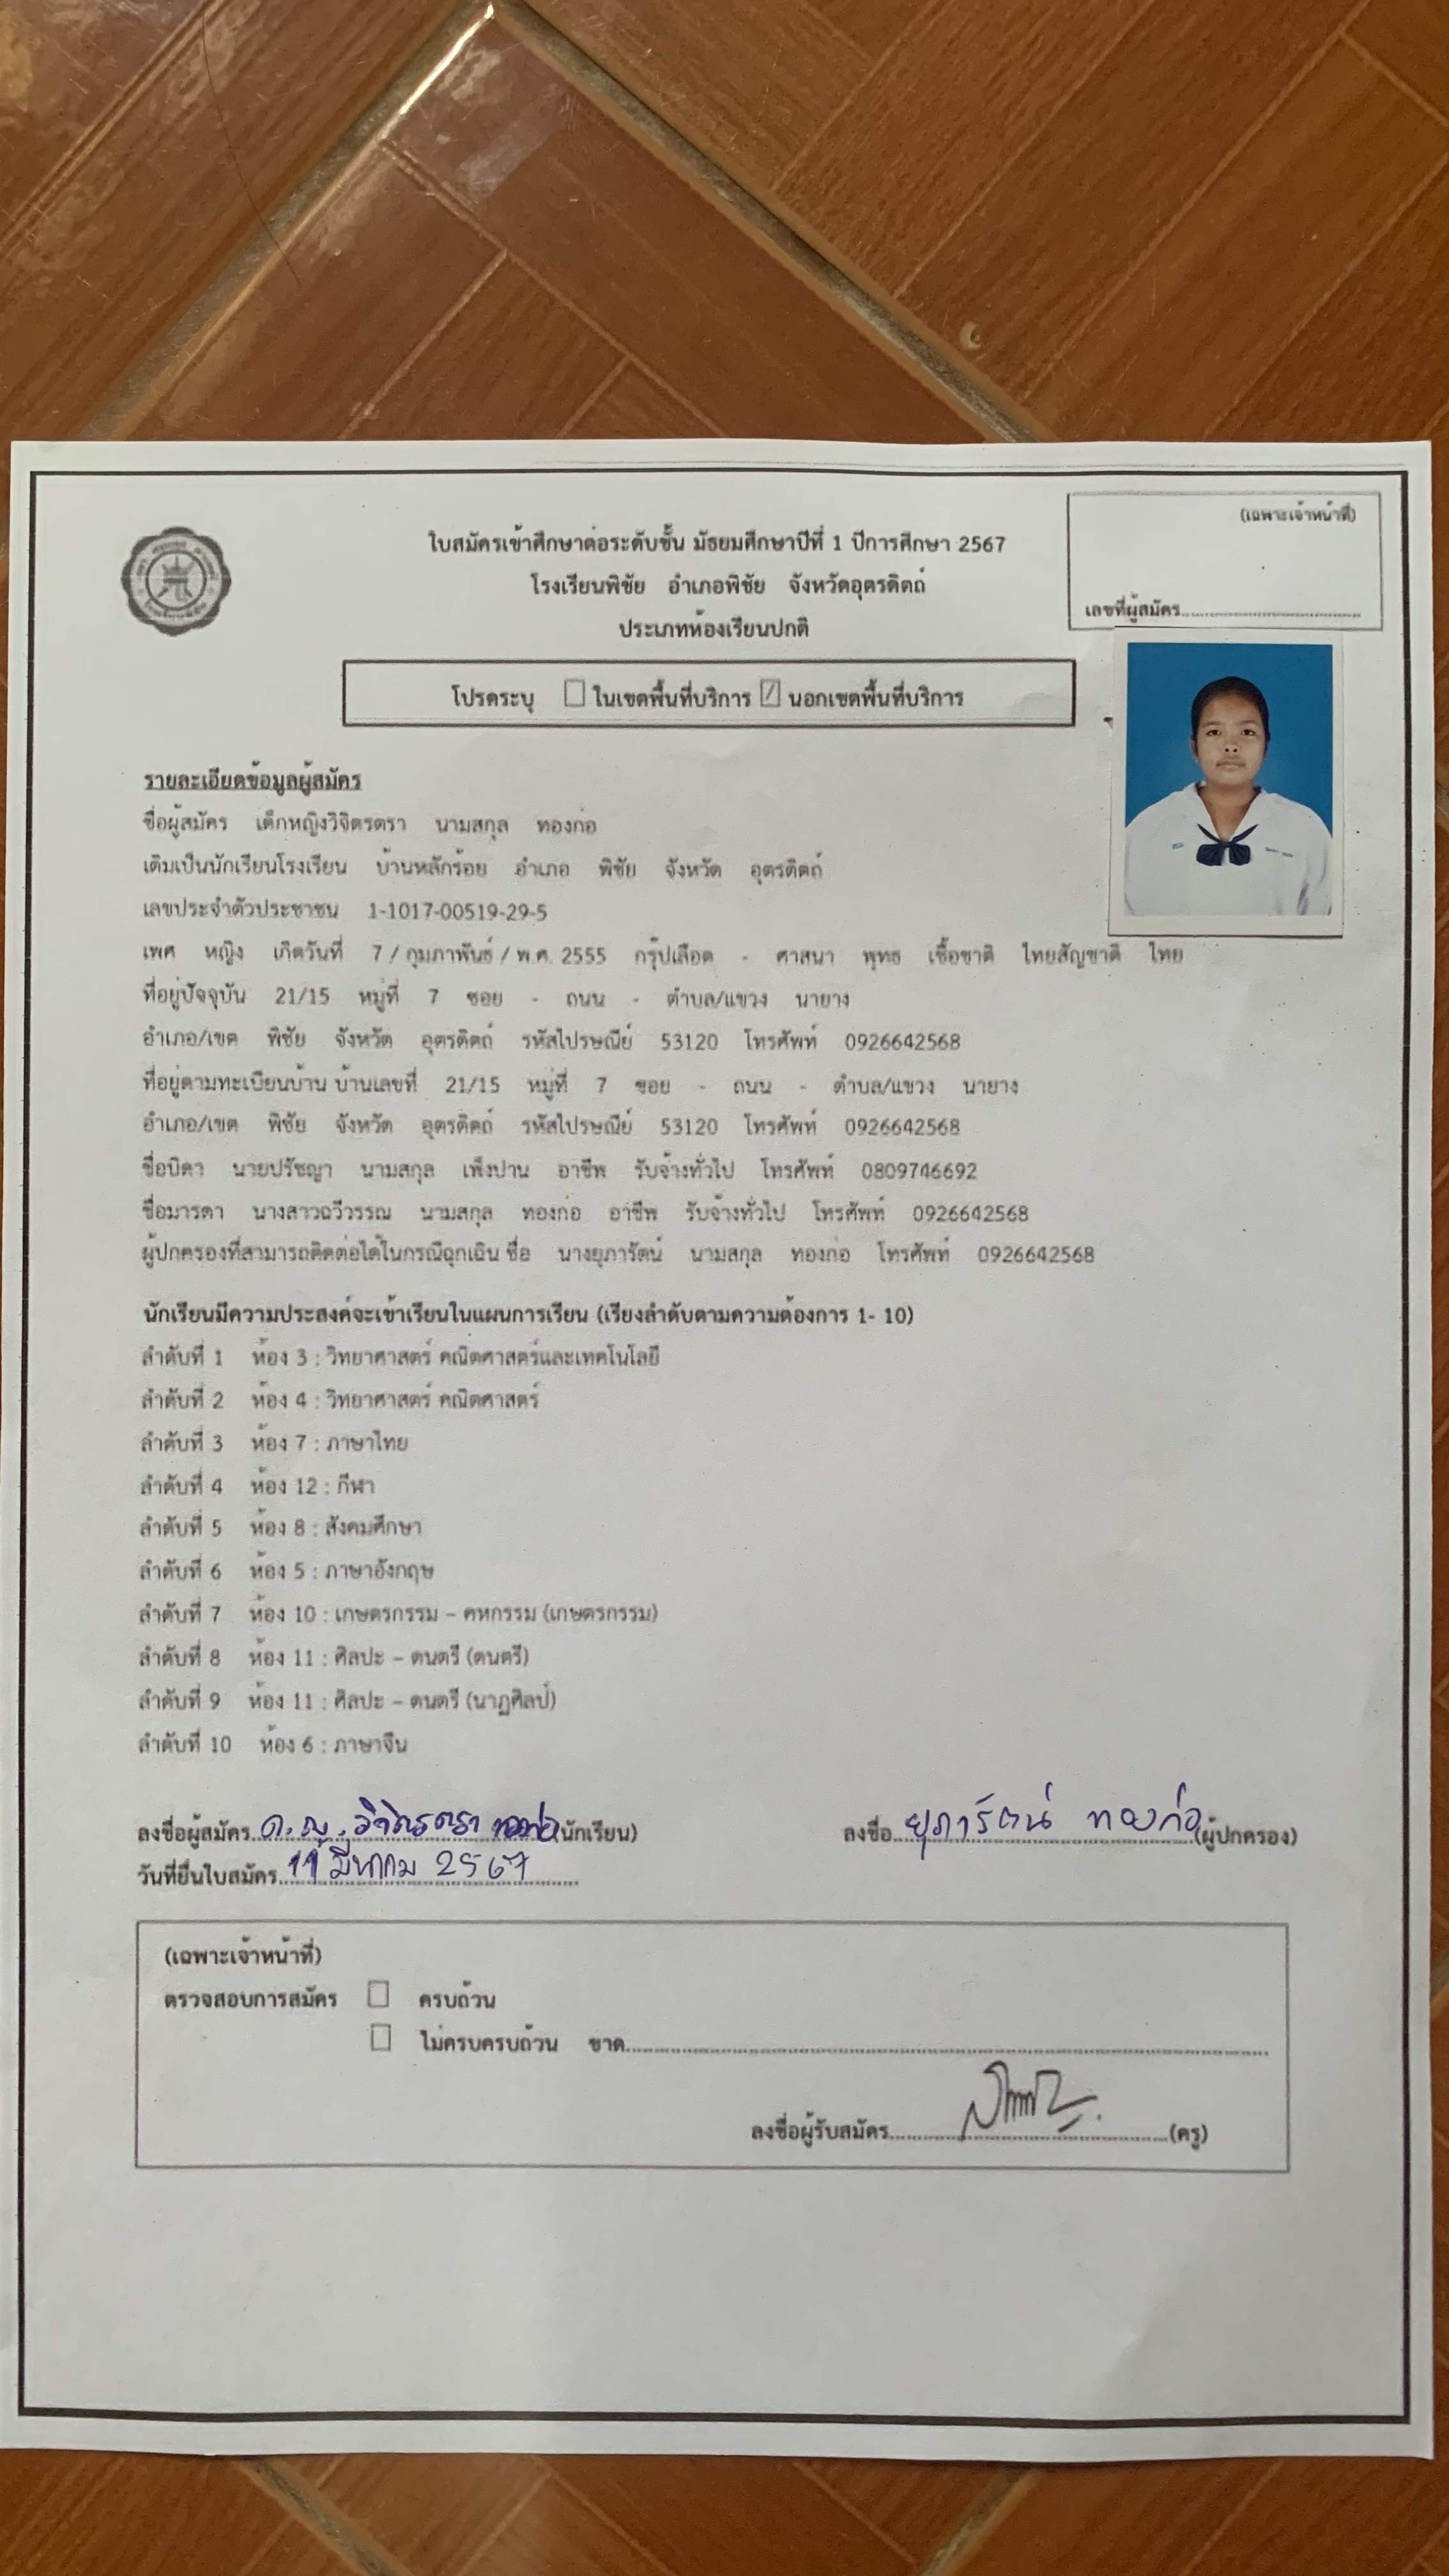 (เฉพาะเจ้าหน้าที่)
เลขที่ผู้สมัคร
ใบสมัครเข้าศึกษาต่อระดับชั้น มัธยมศึกษาปีที่ 1 ปีการศึกษา 2567
โรงเรียนพิชัย อำเภอพิชัย จังหวัดอุตรดิตถ์
ประเภทห้องเรียนปกติ
โปรดระบุ ☐ ในเขตพื้นที่บริการ ☑ นอกเขตพื้นที่บริการ
รายละเอียดข้อมูลผู้สมัคร
ชื่อผู้สมัคร เด็กหญิงวิจิตรตรา นามสกุล ทองก่อ
เดิมเป็นนักเรียนโรงเรียน บ้านหลักร้อย อำเภอ พิชัย จังหวัด อุตรดิตถ์
เลขประจำตัวประชาชน 1-1017-00519-29-5
เพศ หญิง เกิดวันที่ 7 / กุมภาพันธ์ / พ.ศ. 2555 กรุ๊ปเลือด - ศาสนา พุทธ เชื้อชาติ ไทยสัญชาติ ไทย
ที่อยู่ปัจจุบัน 21/15 หมู่ที่ 7 ซอย - ถนน - ตำบล/แขวง นายาง
อำเภอ/เขต พิชัย จังหวัด อุตรดิตถ์ รหัสไปรษณีย์ 53120 โทรศัพท์ 0926642568
ที่อยู่ตามทะเบียนบ้าน บ้านเลขที่ 21/15 หมู่ที่ 7 ซอย - ถนน - ตำบล/แขวง นายาง
อำเภอ/เขต พิชัย จังหวัด อุตรดิตถ์ รหัสไปรษณีย์ 53120 โทรศัพท์ 0926642568
ชื่อบิดา นายปรัชญา นามสกุล เพ็งปาน อาชีพ รับจ้างทั่วไป โทรศัพท์ 0809746692
ชื่อมารดา นางสาวฉวีวรรณ นามสกุล ทองก่อ อาชีพ รับจ้างทั่วไป โทรศัพท์ 0926642568
ผู้ปกครองที่สามารถติดต่อได้ในกรณีฉุกเฉิน ชื่อ นางยุภารัตน์ นามสกุล ทองก่อ โทรศัพท์ 0926642568
นักเรียนมีความประสงค์จะเข้าเรียนในแผนการเรียน (เรียงลำดับตามความต้องการ 1- 10)
ลำดับที่ 1 ห้อง 3 : วิทยาศาสตร์ คณิตศาสตร์และเทคโนโลยี
ลำดับที่ 2 ห้อง 4 : วิทยาศาสตร์ คณิตศาสตร์
ลำดับที่ 3 ห้อง 7 : ภาษาไทย
ลำดับที่ 4 ห้อง 12 : กีฬา
ลำดับที่ 5 ห้อง 8 : สังคมศึกษา
ลำดับที่ 6 ห้อง 5 : ภาษาอังกฤษ
ลำดับที่ 7 ห้อง 10 : เกษตรกรรม – คหกรรม (เกษตรกรรม)
ลำดับที่ 8 ห้อง 11 : ศิลปะ – ดนตรี (ดนตรี)
ลำดับที่ 9 ห้อง 11 : ศิลปะ – ดนตรี (นาฏศิลป์)
ลำดับที่ 10 ห้อง 6 : ภาษาจีน
ลงชื่อผู้สมัคร ด.ญ. วิจิตรตรา ทองก่อ (นักเรียน) ลงชื่อ ยุภารัตน์ ทองก่อ (ผู้ปกครอง)
วันที่ยื่นใบสมัคร 11 มีนาคม 2567
(เฉพาะเจ้าหน้าที่)
ตรวจสอบการสมัคร ☐ ครบถ้วน
☐ ไม่ครบครบถ้วน ขาด
ลงชื่อผู้รับสมัคร (ครู)